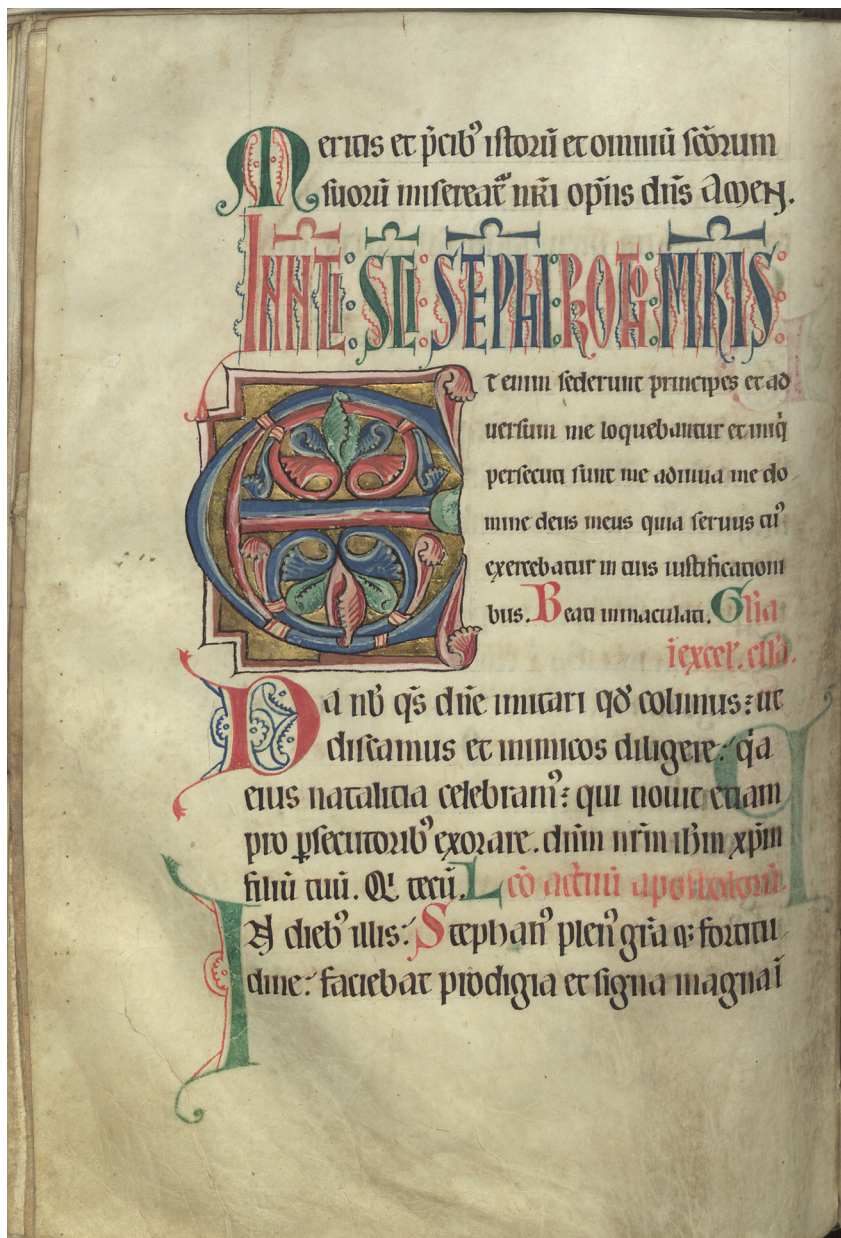 Meritis et p̄cib᷒ istorū et omniū sc̄orum
suorū misereat᷑ nr̄i op̄ns dn̄s Amen.
IN NT̄LI SC̄I STEPHI ROTOM̄RIS
Et enim sederunt principes et ad
uersum me loquebantur et iniq̇
persecuti sunt me adiuua me do-
mine deus meus quia seruus tu᷒
exercebatur in tuis iustification
bus. Beati inmaculati. Gl̄ia
i excel'.
Da nob̄ q̄s dn̄e imitari qd̄ colimus: ut
discamus et inimicos diligere: q̇a
eius natalitia celebram᷒: qui nouit etiam
pro ꝑsecutorib᷒ exorare. dn̄m nr̄m ih̄m xp̄m
filiū tuū. Q' tecū. Lc̄o actuū apostolorū.
IN dieb᷒ illis: Stephan᷒ plen᷒ gr̄a &  fortitu-
dine: faciebat prodigia et signa magna ī